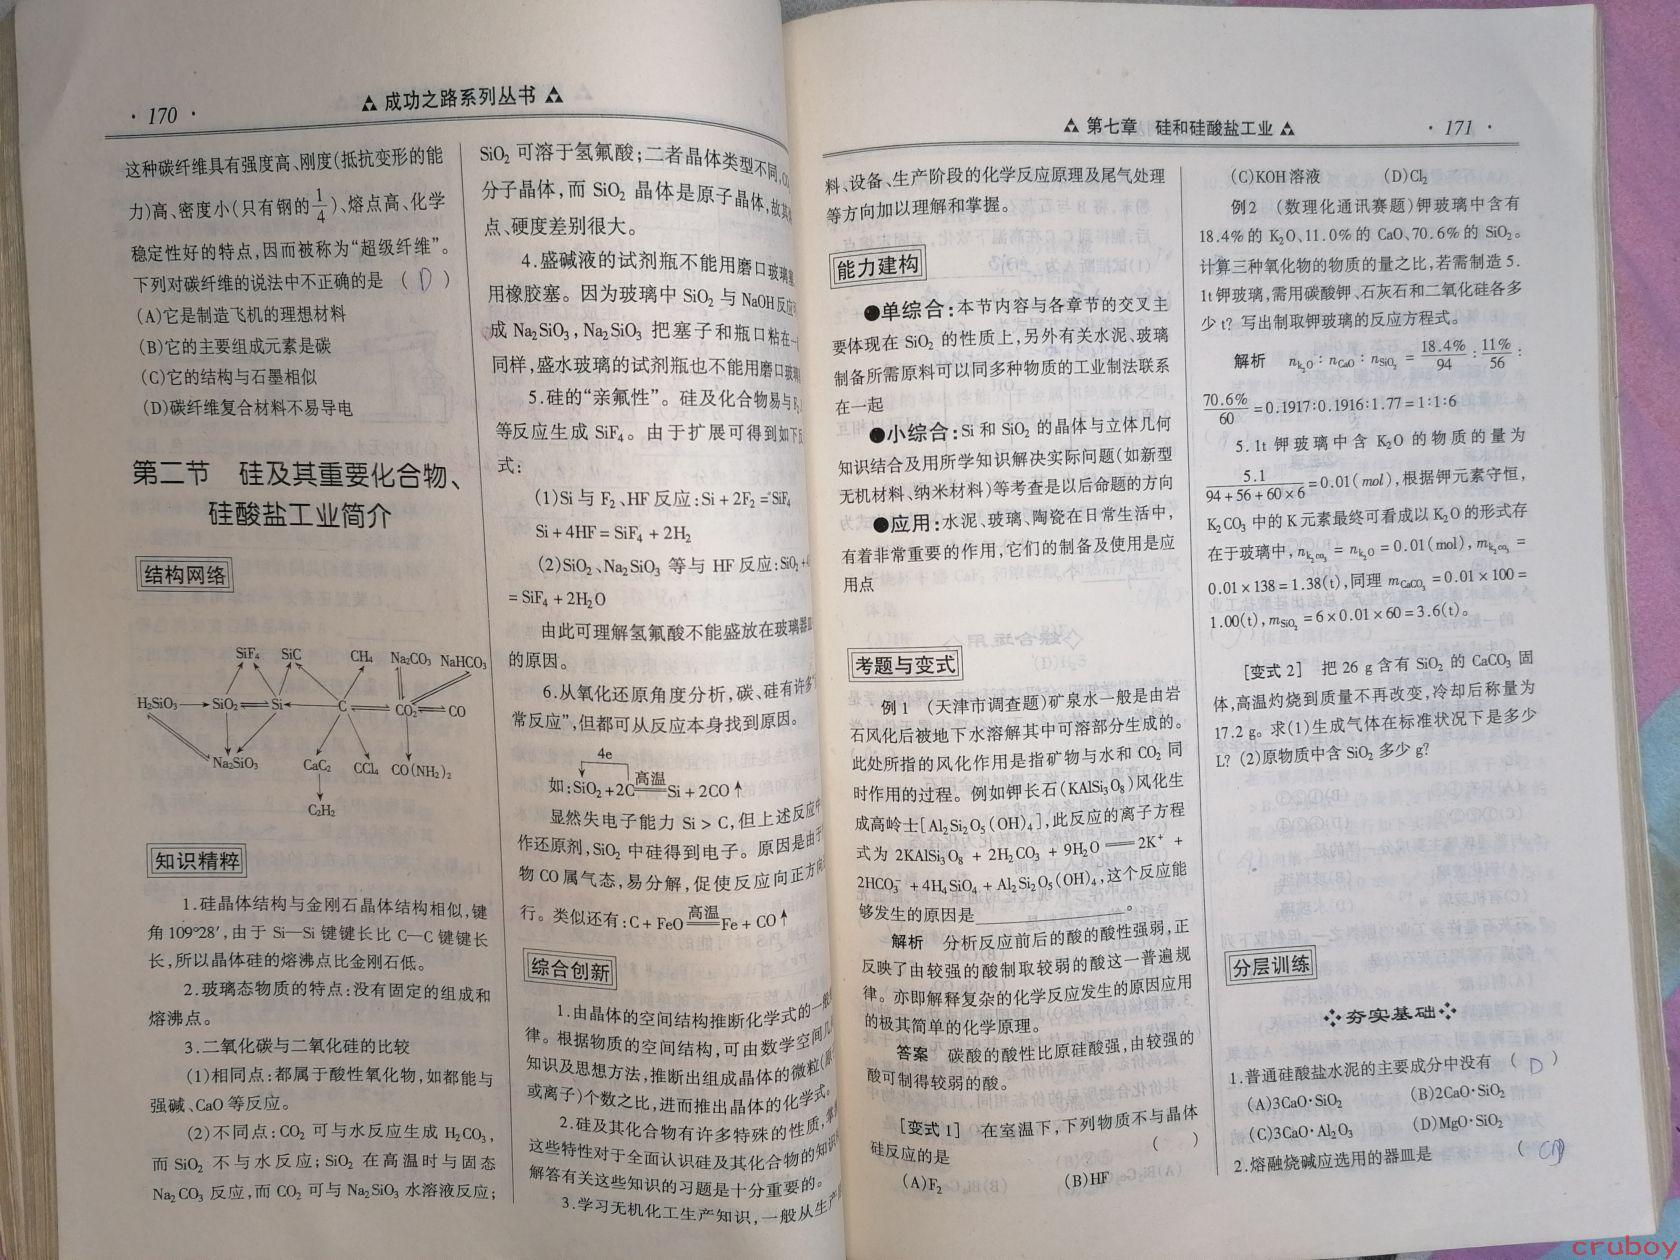 · 170 ·
成功之路系列丛书
这种碳纤维具有强度高、刚度(抵抗变形的能
力)高、密度小(只有钢的1/4)、熔点高、化学
稳定性好的特点,因而被称为“超级纤维”。
下列对碳纤维的说法中不正确的是 ( D )
(A)它是制造飞机的理想材料
(B)它的主要组成元素是碳
(C)它的结构与石墨相似
(D)碳纤维复合材料不易导电
第二节 硅及其重要化合物、
硅酸盐工业简介
结构网络
SiF₄ SiC CH₄ Na₂CO₃ NaHCO₃
H₂SiO₃ SiO₂ Si C CO₂ CO
Na₂SiO₃ CaC₂ CCl₄ CO(NH₂)₂
C₂H₂
知识精粹
1.硅晶体结构与金刚石晶体结构相似,键
角109°28′,由于 Si—Si 键键长比 C—C 键键长
长,所以晶体硅的熔沸点比金刚石低。
2.玻璃态物质的特点:没有固定的组成和
熔沸点。
3.二氧化碳与二氧化硅的比较
(1)相同点:都属于酸性氧化物,如都能与
强碱、CaO等反应。
(2)不同点:CO₂ 可与水反应生成 H₂CO₃,
而 SiO₂ 不与水反应;SiO₂ 在高温时与固态
Na₂CO₃ 反应,而 CO₂ 可与 Na₂SiO₃ 水溶液反应;
SiO₂ 可溶于氢氟酸;二者晶体类型不同,
分子晶体,而 SiO₂ 晶体是原子晶体,故其
点、硬度差别很大。
4.盛碱液的试剂瓶不能用磨口玻璃
用橡胶塞。因为玻璃中 SiO₂ 与 NaOH 反应
成 Na₂SiO₃,Na₂SiO₃ 把塞子和瓶口粘在一
同样,盛水玻璃的试剂瓶也不能用磨口玻璃
5.硅的“亲氟性”。硅及化合物易与
等反应生成 SiF₄。由于扩展可得到如下反
式:
(1)Si 与 F₂、HF 反应:Si + 2F₂ = SiF₄
Si + 4HF = SiF₄ + 2H₂
(2)SiO₂、Na₂SiO₃ 等与 HF 反应:SiO₂ +
= SiF₄ + 2H₂O
由此可理解氢氟酸不能盛放在玻璃器
的原因。
6.从氧化还原角度分析,碳、硅有许多“
常反应”,但都可从反应本身找到原因。
4e
如:SiO₂ + 2C 高温 Si + 2CO↑
显然失电子能力 Si > C,但上述反应中
作还原剂,SiO₂ 中硅得到电子。原因是由于
物 CO 属气态,易分解,促使反应向正方向
行。类似还有:C + FeO 高温 Fe + CO↑
综合创新
1.由晶体的空间结构推断化学式的一般
律。根据物质的空间结构,可由数学空间几
知识及思想方法,推断出组成晶体的微粒(
或离子)个数之比,进而推出晶体的化学式。
2.硅及其化合物有许多特殊的性质,掌
这些特性对于全面认识硅及其化合物的知识
解答有关这些知识的习题是十分重要的。
3.学习无机化工生产知识,一般从生产
第七章 硅和硅酸盐工业
· 171 ·
料、设备、生产阶段的化学反应原理及尾气处理
等方向加以理解和掌握。
能力建构
●单综合:本节内容与各章节的交叉主
要体现在 SiO₂ 的性质上,另外有关水泥、玻璃
制备所需原料可以同多种物质的工业制法联系
在一起
●小综合:Si 和 SiO₂ 的晶体与立体几何
知识结合及用所学知识解决实际问题(如新型
无机材料、纳米材料)等考查是以后命题的方向
●应用:水泥、玻璃、陶瓷在日常生活中,
有着非常重要的作用,它们的制备及使用是应
用点
考题与变式
例1 (天津市调查题)矿泉水一般是由岩
石风化后被地下水溶解其中可溶部分生成的。
此处所指的风化作用是指矿物与水和 CO₂ 同
时作用的过程。例如钾长石(KAlSi₃O₈)风化生
成高岭士[Al₂Si₂O₅(OH)₄],此反应的离子方程
式为 2KAlSi₃O₈ + 2H₂CO₃ + 9H₂O == 2K⁺ +
2HCO₃⁻ + 4H₄SiO₄ + Al₂Si₂O₅(OH)₄,这个反应能
够发生的原因是____________。
解析 分析反应前后的酸的酸性强弱,正
反映了由较强的酸制取较弱的酸这一普遍规
律。亦即解释复杂的化学反应发生的原因应用
的极其简单的化学原理。
答案 碳酸的酸性比原硅酸强,由较强的
酸可制得较弱的酸。
[变式1] 在室温下,下列物质不与晶体
硅反应的是 ( )
(A)F₂ (B)HF
(C)KOH溶液 (D)Cl₂
例2 (数理化通讯赛题)钾玻璃中含有
18.4%的 K₂O、11.0%的 CaO、70.6%的 SiO₂。
计算三种氧化物的物质的量之比,若需制造5.
1t 钾玻璃,需用碳酸钾、石灰石和二氧化硅各多
少 t? 写出制取钾玻璃的反应方程式。
解析 n_K₂O : n_CaO : n_SiO₂ = 18.4%/94 : 11%/56 :
70.6%/60 = 0.1917:0.1916:1.77 = 1:1:6
5.1t 钾玻璃中含 K₂O 的物质的量为
5.1/(94+56+60×6) = 0.01(mol),根据钾元素守恒,
K₂CO₃ 中的 K 元素最终可看成以 K₂O 的形式存
在于玻璃中,n_K₂CO₃ = n_K₂O = 0.01(mol),m_K₂CO₃ =
0.01×138 = 1.38(t),同理 m_CaCO₃ = 0.01×100 =
1.00(t),m_SiO₂ = 6×0.01×60 = 3.6(t)。
[变式2] 把26 g 含有 SiO₂ 的 CaCO₃ 固
体,高温灼烧到质量不再改变,冷却后称量为
17.2 g。求(1)生成气体在标准状况下是多少
L? (2)原物质中含 SiO₂ 多少 g?
分层训练
夯实基础
1.普通硅酸盐水泥的主要成分中没有 ( D )
(A)3CaO·SiO₂ (B)2CaO·SiO₂
(C)3CaO·Al₂O₃ (D)MgO·SiO₂
2.熔融烧碱应选用的器皿是 (
cruboy